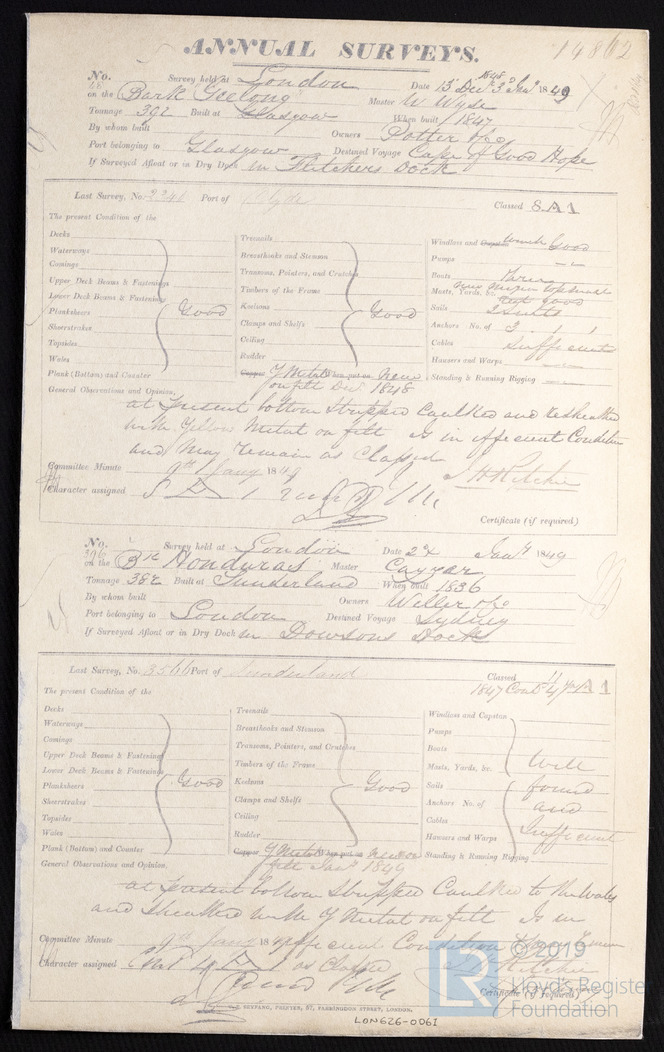 ANNUAL SURVEYS.
14802
No. 28 Survey held at London Date 15 Decr 1848 3d Jany 1849
on the Bark Geelong Master W Wyse
Tonnage 392 Built at Glasgow When built 1847
By whom built Owners Potter & Co
Port belonging to Glasgow Destined Voyage Cape of Good Hope
If Surveyed Afloat or in Dry Dock in Fletchers Dock
Last Survey, No. Port of Clyde Classed 8 A 1
The present Condition of the
Decks
Waterways
Comings
Upper Deck Beams & Fastenings
Lower Deck Beams & Fastenings
Planksheers
Sheerstrakes
Topsides
Wales
Plank (Bottom) and Counter
Good
Treenails
Breasthooks and Stemson
Transoms, Pointers, and Crutches
Timbers of the Frame
Keelsons
Clamps and Shelfs
Ceiling
Rudder
Good
Copper Y Metal When put on New
on felt Decr 1848
Windlass and Capstan Good
Pumps
Boats Three
Masts, Yards, &c.
Sails 2 Suits
Anchors No. of 3 . 1 . 1
Cables Sufficient
Hausers and Warps
Standing & Running Rigging
General Observations and Opinion,
at present bottom Stripped Caulked and Resheathed
with Yellow Metal on felt Is in efficient Condition
and May remain as Classed
Committee Minute 9th Jany 1849
J H Ritchie
Character assigned 8 A 1
Certificate (if required)
No. 396 Survey held at London Date 2d Jany 1849
on the Bk Honduras Master Cayzar
Tonnage 382 Built at Sunderland When built 1836
By whom built Owners Weller & Co
Port belonging to London Destined Voyage Sydney
If Surveyed Afloat or in Dry Dock in Dowsons Dock
Last Survey, No. 3566 Port of Sunderland Classed 11
1847 Contd 4 yrs A 1
The present Condition of the
Decks
Waterways
Comings
Upper Deck Beams & Fastenings
Lower Deck Beams & Fastenings
Planksheers
Sheerstrakes
Topsides
Wales
Plank (Bottom) and Counter
Good
Treenails
Breasthooks and Stemson
Transoms, Pointers, and Crutches
Timbers of the Frame
Keelsons
Clamps and Shelfs
Ceiling
Rudder
Good
Copper Y Metal When put on New on
felt Jany 1849
Windlass and Capstan
Pumps
Boats
Masts, Yards, &c.
Sails
Anchors No. of
Cables
Hausers and Warps
Standing & Running Rigging
Well
found
and
Sufficient
General Observations and Opinion,
at present bottom Stripped Caulked to the Wales
and Sheathed with Y Metal on felt Is in
efficient Condition
Committee Minute 9th Jany 184
Character assigned Contd 4 A 1 as Classed
J H Ritchie
Certificate (if required)
SEYFANG, PRINTER, 57, FARRINGDON STREET, LONDON.
LON626-0061
© 2019
LR
Lloyd's Register
Foundation